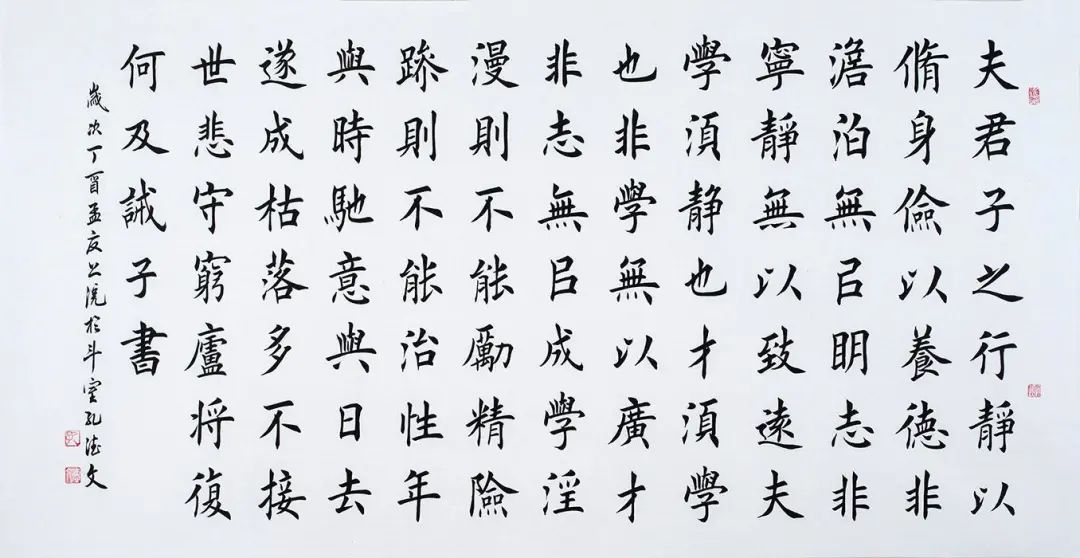 夫君子之行静以
脩身儉以養德非
澹泊無㠯明志非
寧静無以致遠夫
學湏静也才湏學
也非學無以廣才
非志無㠯成學淫
漫則不能勵精險
跡則不能治性年
與時馳意與日去
遂成枯落多不接
世悲守窮廬将復
何及誡子書
歲次丁酉孟夏上浣於斗室孔德文